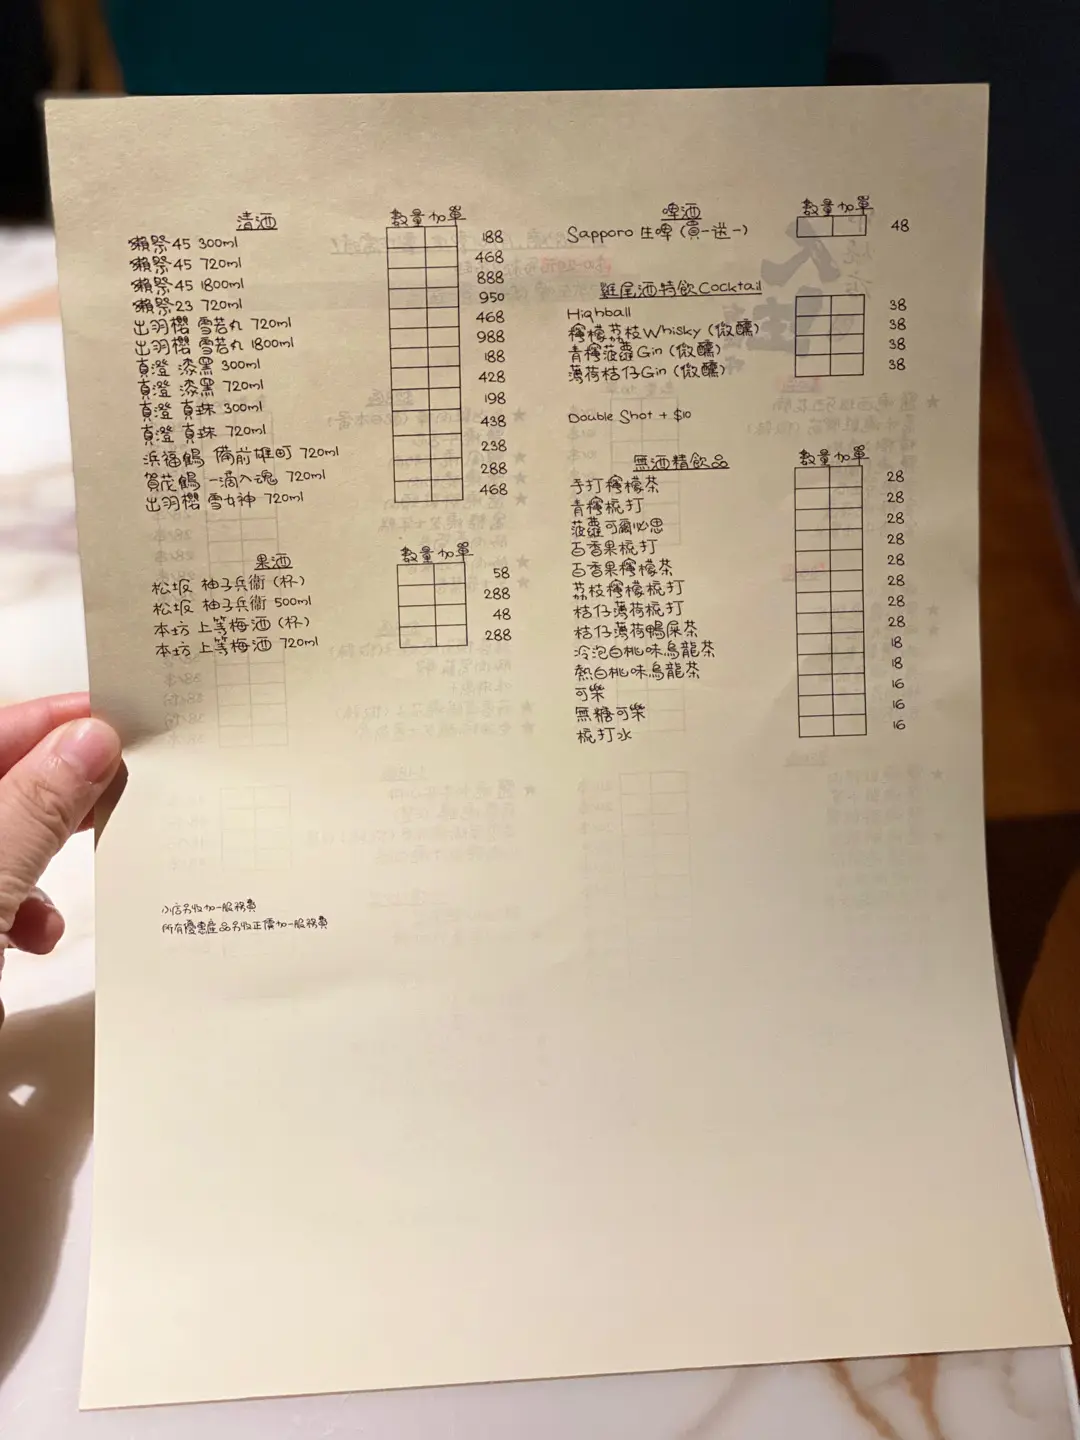 清酒 數量 加單
獺祭45 300ml 188
獺祭45 720ml 468
獺祭45 1800ml 888
獺祭23 720ml 950
出羽櫻 雪若丸 720ml 468
出羽櫻 雪若丸 1800ml 988
真澄 漆黑 300ml 188
真澄 漆黑 720ml 428
真澄 真珠 300ml 198
真澄 真珠 720ml 438
浜福鶴 備前雄町 720ml 238
賀茂鶴 一滴入魂 720ml 288
出羽櫻 雪女神 720ml 468
果酒 數量 加單
松坂 柚子兵衛 (杯) 58
松坂 柚子兵衛 500ml 288
本坊 上等梅酒 (杯) 48
本坊 上等梅酒 720ml 288
小店另收加一服務費
所有優惠產品另收正價加一服務費
啤酒 數量 加單
Sapporo 生啤 (買一送一) 48
雞尾酒特飲 Cocktail
Highball 38
檸檬荔枝 Whisky (微醺) 38
青檸菠蘿 Gin (微醺) 38
薄荷桔仔 Gin (微醺) 38
Double Shot + $10
無酒精飲品 數量 加單
手打檸檬茶 28
青檸梳打 28
菠蘿可爾必思 28
百香果梳打 28
百香果檸檬茶 28
荔枝檸檬梳打 28
桔仔薄荷梳打 28
桔仔薄荷鴨屎茶 28
冷泡白桃味烏龍茶 18
熱白桃味烏龍茶 18
可樂 16
無糖可樂 16
梳打水 16